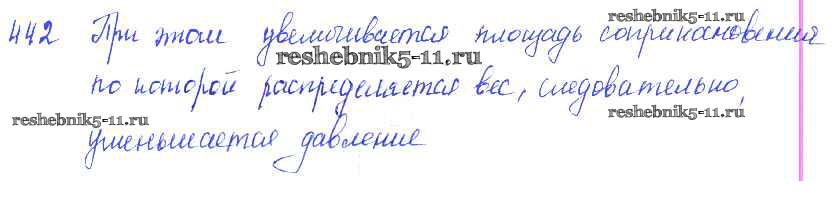 reshebnik5-11.ru
442 При этом увеличивается площадь соприкановения
reshebnik5-11.ru
по которой распределяется вес, следовательно,
reshebnik5-11.ru
reshebnik5-11.ru
уменьшается давление